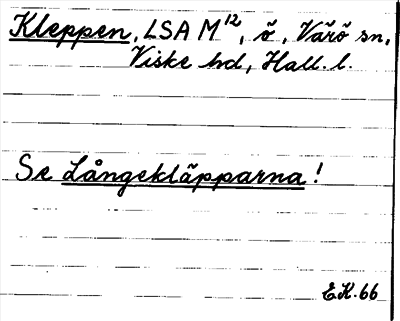 Kleppen, LSA M¹², ö, Värö sn,
Viske hd, Hall. l.
Se Långekläpparna!
E.K. 66